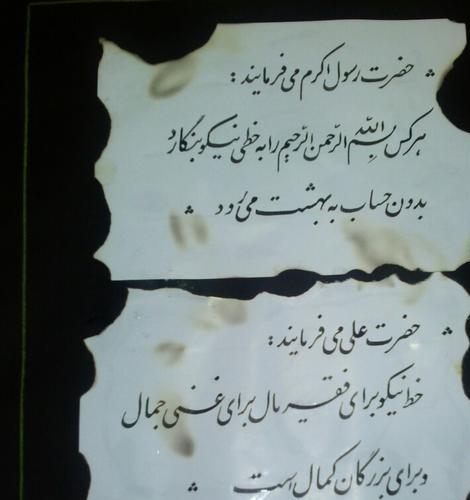 حضرت رسول اکرم می فرمایند :
هرکس بسم الله الرحمن الرحیم را به خطی نیکو بنگارد
بدون حساب به بهشت می رود
حضرت علی می فرمایند :
خط نیکو برای فقیر مال برای غنی جمال
و برای بزرگان کمال است